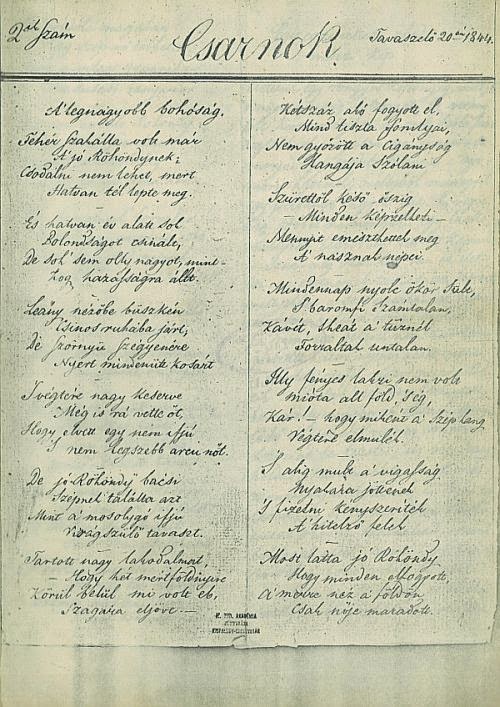 2dik Szám
Csarnok.
Tavaszelő 20án 1844.
A' legnagyobb bohóság.
Fehér szakálla volt már
A' jó Köhöndynek;
Csodálni nem lehet, mert
Hatvan tél lepte meg.
És hatvan év alatt sok
Bolondságot csinált,
De sok sem olly nagyot, mint –
Hogy házasságra állt.
Leány nézőbe büszkén
Csinos ruhába járt,
De szörnyű szégyenére
Nyert mindenütt kosárt
S végtére nagy keserve
Még is rá vette őt,
Hogy elvett egy nem ifjú
S nem legszebb arcu nőt.
De jó Köhöndy bácsi
Szépnek találta azt
Mint a' mosolygó ifjú
Virágszülő tavaszt.
Tartott nagy lakodalmat,
– Hogy két mértföldnyire
Körül belül mi volt eb,
Szagára eljöve –
Kétszáz akó fogyott el,
Mind tiszta somlyai,
Nem győzött a' cigányság
Hangája szólani
Szürettől késő őszig
– Minden képzelheti –
Mennyit emészthettek meg
A' násznak népei.
Mindennap nyolc ökör sült,
S baromfi számtalan,
Kávét, theát a' tüznél
Forraltak untalan.
Illy fényes lakzi nem volt
Miota áll föld, 's ég,
Kár! – hogy miként a' szép hang
Végtére elmulék.
S alig mult a' vigasság
Nyakára jövének
'S fizetni kényszeriték
A' hitelző felek
Most látta jó Köhöndy
Hogy minden elfogyott,
A' merre néz a' földön
Csak nője maradott.
M. TUD. AKADÉMIA
KÖNYVTÁRA